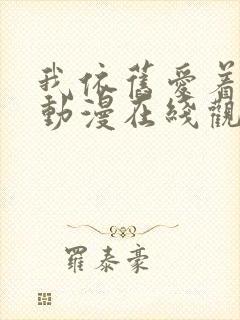 我依舊愛着
動漫在綫觀
羅泰豪